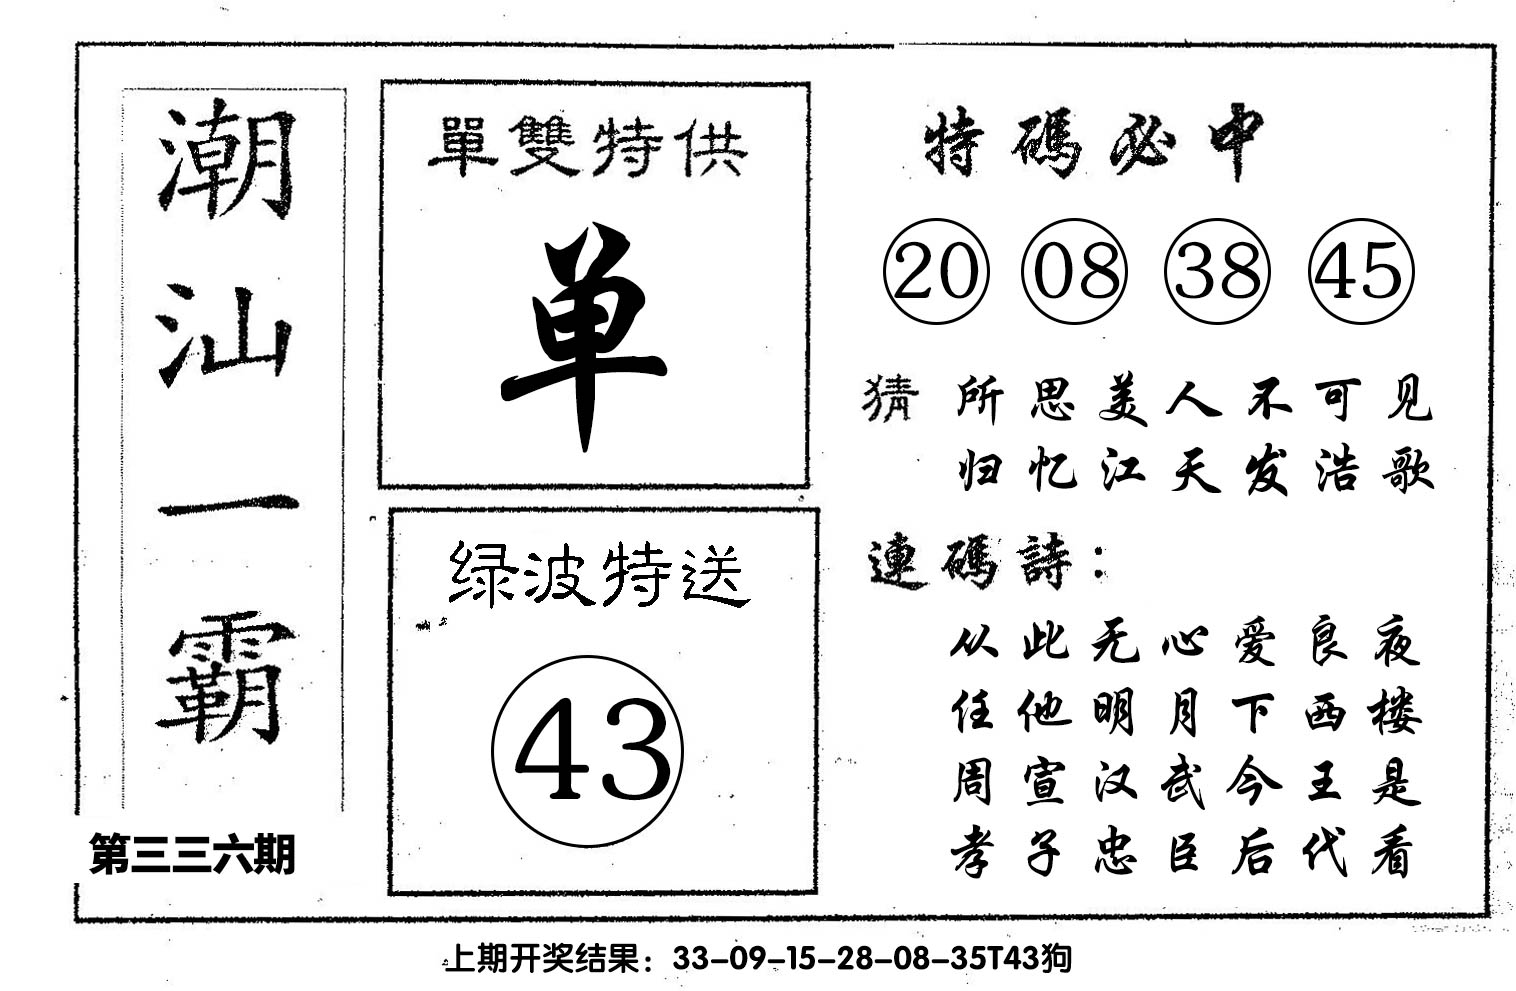 潮汕一霸
第三三六期
單雙特供
单
绿波特送
43
特碼必中
20 08 38 45
猜 所思美人不可见
归忆江天发浩歌
連碼詩：
从此无心爱良夜
任他明月下西楼
周宣汉武今王是
孝子忠臣后代看
上期开奖结果：33-09-15-28-08-35T43狗